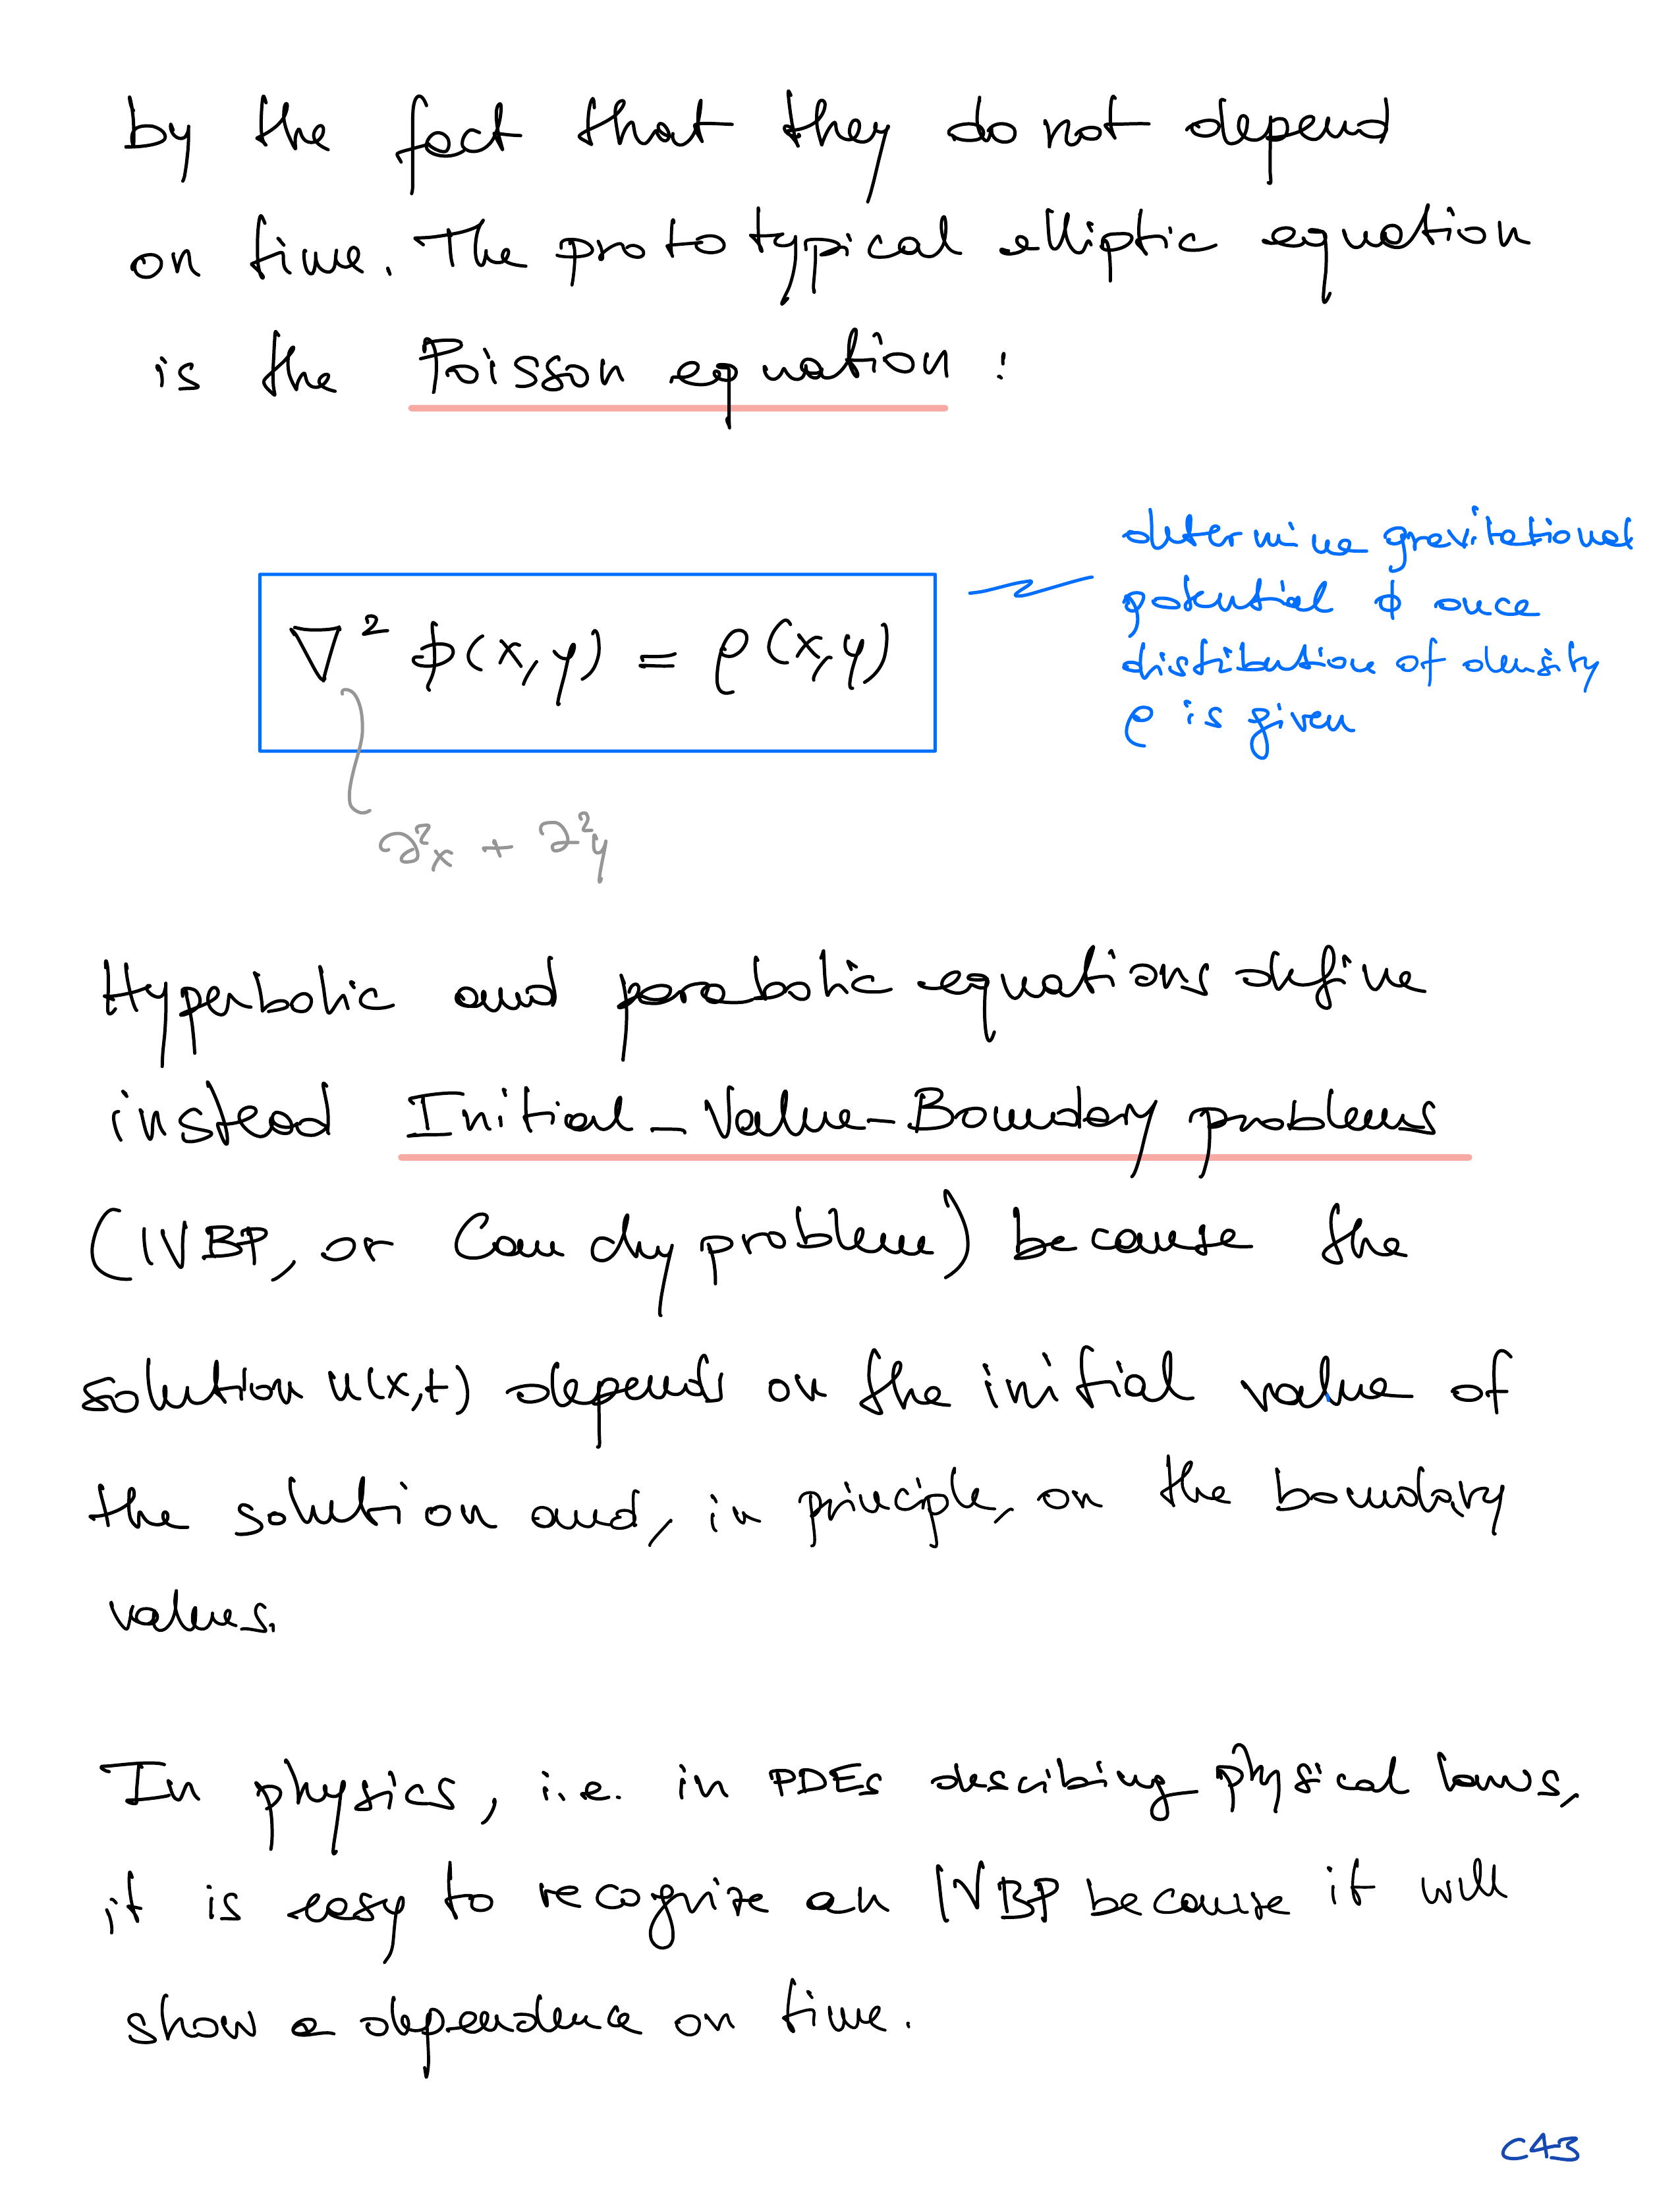 by the fact that they do not depend
on time. The prototypical elliptic equation
is the Poisson equation:
∇² ϕ(x,y) = ρ(x,y)
determine gravitational
potential ϕ once
distribution of density
ρ is given
∂²x + ∂²y
Hyperbolic and parabolic equations define
instead Initial-Value-Boundary problems
(IVBP, or Cauchy problem) because the
solution u(x,t) depends on the initial value of
the solution and, in principle, on the boundary
values.
In physics, i.e. in PDEs describing physical laws,
it is easy to recognize an IVBP because it will
show a dependence on time.
C43